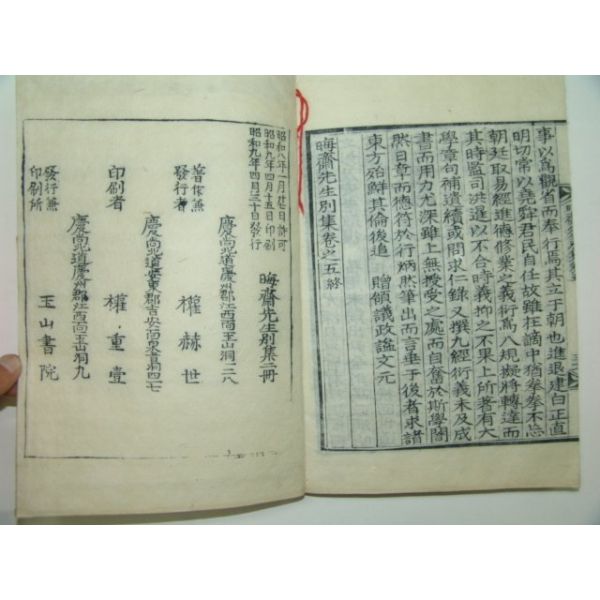 事以爲觀省而奉行焉其立于朝也進退建白正直
明切常以堯舜君民自任故雖在謫中猶拳拳不忘
朝廷取易經進德修業之義衍爲八規擬將轉達而
其時監司洪暹以不合時義抑之不果上所著有大
學章句補遺續或問求仁錄又撰九經衍義未及成
書而用力尤深雖上無授受之處而自奮於斯學闇
然日章而德符於行炳然筆出而言垂于後者求諸
東方殆鮮其倫後追贈領議政謚文元
晦齋先生別集卷之五終
晦齋先生別集二冊
昭和八年一月廿日許可
昭和九年四月十五日印刷
昭和九年四月三十日發行
慶尙北道慶州郡江西面玉山洞二八
著作兼發行者 權赫世
慶尙北道安東郡吉安面
印刷者 權重壹
慶尙北道慶州郡江西面玉山洞九
發行兼印刷所 玉山書院